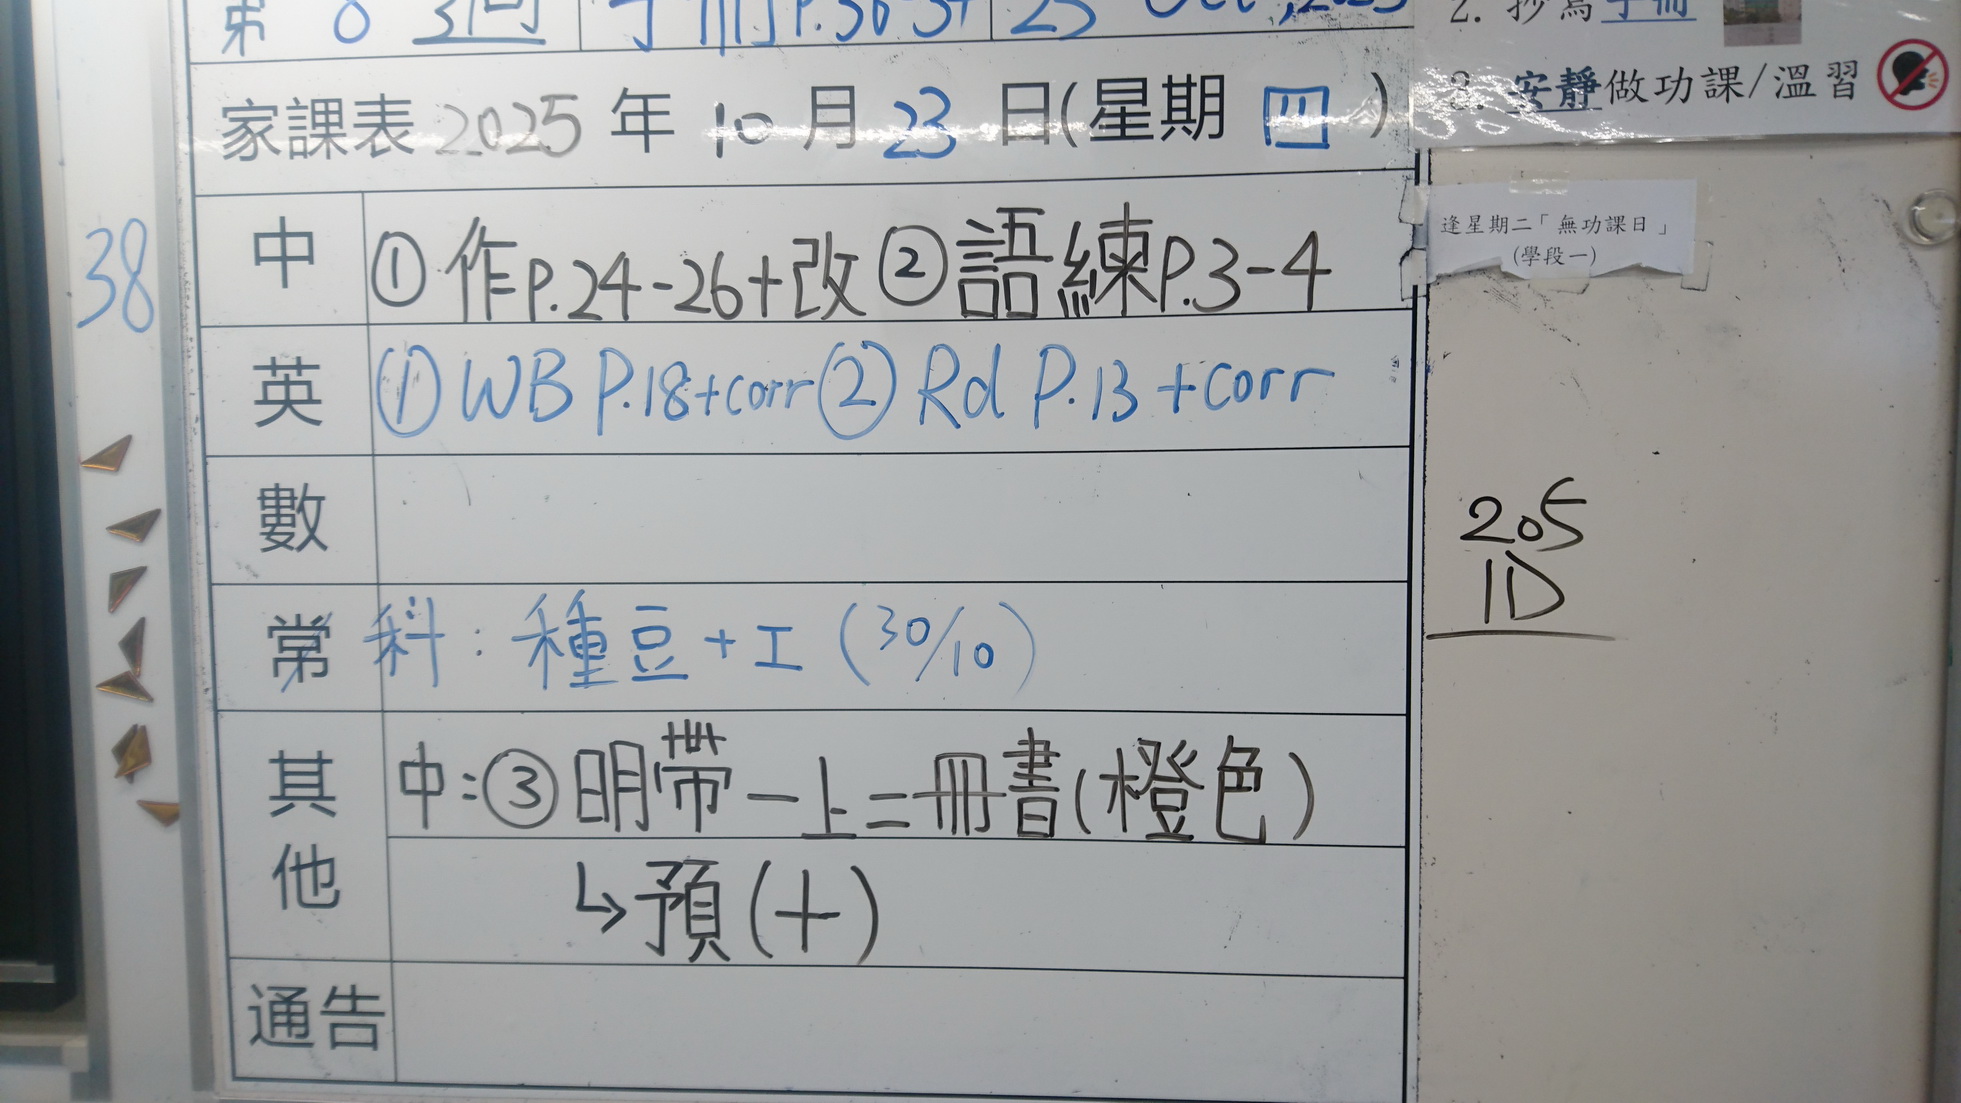 第 8 週 手冊P.36-37 23 Oct, 2025
家課表 2025 年 10 月 23 日(星期 四 )
中 ① 作P.24-26+改 ② 語練P.3-4
英 ① WB P.18+corr ② Rd P.13 +corr
數
常 科: 種豆+工 (30/10)
其他 中:③ 明帶一上二冊書(橙色)
↳預(十)
通告
38
2. 抄寫手冊
3. 安靜做功課/溫習
逢星期二「無功課日」
(學段一)
205
1D